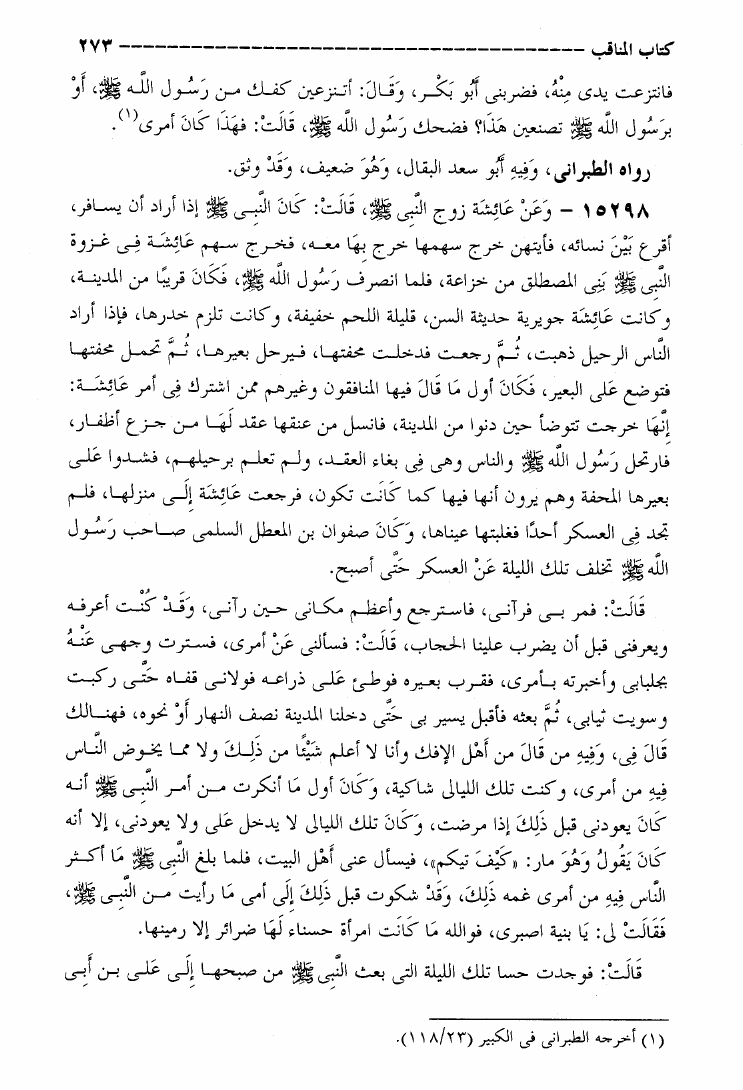 كتاب المناقب ------------------------------------ ٢٧٣
فانتزعت يدى مِنْهُ، فضربنى أَبُو بَكْر، وَقَالَ: أتنزعين كفك من رَسُول اللَّه ﷺ، أَوْ
برَسُول اللَّه ﷺ تصنعين هَذَا؟ فضحك رَسُول اللَّه ﷺ، قَالَتْ: فهَذَا كَانَ أمرى(١).
رواه الطبرانى، وَفِيهِ أَبُو سعد البقال، وَهُوَ ضعيف، وَقَدْ وثق.
١٥٢٩٨ - وَعَنْ عَائِشَة زوج النَّبِى ﷺ، قَالَتْ: كَانَ النَّبِى ﷺ إذا أراد أن يسافر،
أقرع بَيْنَ نسائه، فأيتهن خرج سهمها خرج بِهَا معه، فخرج سهم عَائِشَة فِى غزوة
النَّبِى ﷺ بَنِى المصطلق من خزاعة، فلما انصرف رَسُول اللَّه ﷺ، فَكَانَ قريبًا من المدينة،
وكانت عَائِشَة جويرية حديثة السن، قليلة اللحم خفيفة، وكانت تلزم خدرها، فإذا أراد
النَّاس الرحيل ذهبت، ثُمَّ رجعت فدخلت محفتها، فيرحل بعيرها، ثُمَّ تحمل محفتها
فتوضع عَلَى البعير، فَكَانَ أول مَا قَالَ فيها المنافقون وغيرهم ممن اشترك فِى أمر عَائِشَة:
إِنَّهَا خرجت تتوضأ حين دنوا من المدينة، فانسل من عنقها عقد لَهَا من جزع أظفار،
فارتحل رَسُول اللَّه ﷺ والناس وهى فِى بغاء العقد، ولم تعلم برحيلهم، فشدوا عَلَى
بعيرها المحفة وهم يرون أنها فيها كما كَانَت تكون، فرجعت عَائِشَة إِلَى منزلها، فلم
تجد فِى العسكر أحدًا فغلبتها عيناها، وَكَانَ صفوان بن المعطل السلمى صاحب رَسُول
اللَّه ﷺ تخلف تلك الليلة عَنْ العسكر حَتَّى أصبح.
قَالَتْ: فمر بى فرآنى، فاسترجع وأعظم مكانى حين رآنى، وَقَدْ كُنْت أعرفه
ويعرفنى قبل أن يضرب علينا الحجاب، قَالَتْ: فسألنى عَنْ أمرى، فسترت وجهى عَنْهُ
بجلبابى وأخبرته بأمرى، فقرب بعيره فوطئ عَلَى ذراعه فولانى قفاه حَتَّى ركبت
وسويت ثيابى، ثُمَّ بعثه فأقبل يسير بى حَتَّى دخلنا المدينة نصف النهار أَوْ نحوه، فهنالك
قَالَ فِى، وَفِيهِ من قَالَ من أَهْل الإفك وأنا لا أعلم شَيْئًا من ذَلِكَ ولا مما يخوض النَّاس
فِيهِ من أمرى، وكنت تلك الليالى شاكية، وَكَانَ أول مَا أنكرت من أمر النَّبِى ﷺ أنه
كَانَ يعودنى قبل ذَلِكَ إذا مرضت، وَكَانَ تلك الليالى لا يدخل عَلَى ولا يعودنى، إلا أنه
كَانَ يَقُولُ وَهُوَ مار: «كَيْفَ تيكم»، فيسأل عنى أَهْل البيت، فلما بلغ النَّبِى ﷺ مَا أكثر
النَّاس فِيهِ من أمرى غمه ذَلِكَ، وَقَدْ شكوت قبل ذَلِكَ إِلَى أمى مَا رأيت من النَّبِى ﷺ،
فَقَالَتْ لى: يَا بنية اصبرى، فوالله مَا كَانَت امرأة حسناء لَهَا ضرائر إلا رمينها.
قَالَتْ: فوجدت حسا تلك الليلة التى بعث النَّبِى ﷺ من صبحها إِلَى عَلى بن أَبِى
(١) أخرجه الطبرانى فى الكبير (١١٨/٢٣).